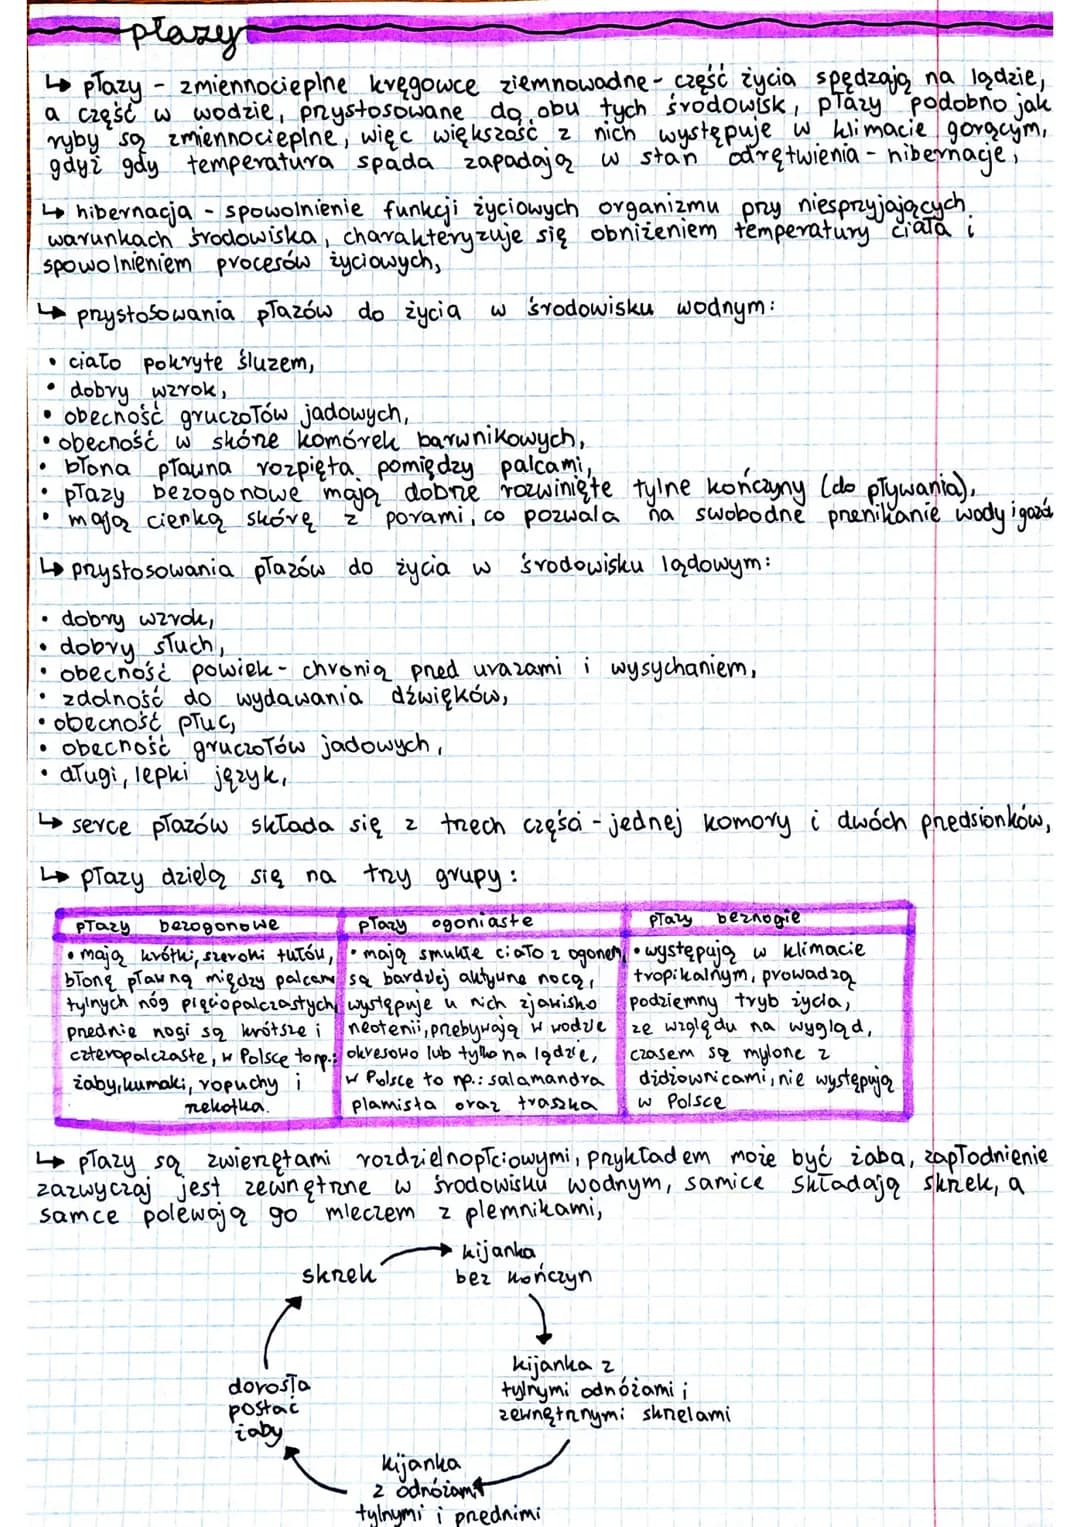 płazy
↳ płazy - zmiennocieplne kręgowce ziemnowodne - część życia spędzają na lądzie,
a część w wodzie, przystosowane do obu tych środowisk, płazy podobno jak
ryby są zmiennocieplne, więc większość z nich występuje w klimacie gorącym,
gdyż gdy temperatura spada zapadają w stan odrętwienia - hibernacje,
↳ hibernacja - spowolnienie funkcji życiowych organizmu przy niesprzyjających
warunkach środowiska, charakteryzuje się obniżeniem temperatury ciała i
spowolnieniem procesów życiowych,
↳ przystosowania płazów do życia w środowisku wodnym:
• ciało pokryte śluzem,
• dobry wzrok,
• obecność gruczołów jadowych,
• obecność w skórze komórek barwnikowych,
• błona pławna rozpięta pomiędzy palcami,
• płazy bezogonowe mają dobrze rozwinięte tylne kończyny (do pływania),
• mają cienką skórę z porami, co pozwala na swobodne przenikanie wody i gazów
↳ przystosowania płazów do życia w środowisku lądowym:
• dobry wzrok,
• dobry słuch,
• obecność powiek - chronią przed urazami i wysychaniem,
• zdolność do wydawania dźwięków,
• obecność płuc,
• obecność gruczołów jadowych,
• długi, lepki język,
↳ serce płazów składa się z trzech części - jednej komory i dwóch przedsionków,
↳ płazy dzielą się na trzy grupy:
płazy bezogonowe
• mają krótki, szeroki tułów,
błonę pławną między palcami
tylnych nóg pięciopalczastych,
przednie nogi są krótsze i
czteropalczaste, w Polsce to np.:
żaby, kumaki, ropuchy i
rzekotka.
płazy ogoniaste
• mają smukłe ciało z ogonem,
są bardziej aktywne nocą,
występuje u nich zjawisko
neotenii, przebywają w wodzie
okresowo lub tylko na lądzie,
w Polsce to np.: salamandra
plamista oraz traszka
płazy beznogie
• występują w klimacie
tropikalnym, prowadzą
podziemny tryb życia,
ze względu na wygląd,
czasem są mylone z
dżdżownicami, nie występują
w Polsce
↳ płazy są zwierzętami rozdzielnopłciowymi, przykładem może być żaba, zapłodnienie
zazwyczaj jest zewnętrzne w środowisku wodnym, samice składają skrzek, a
samce polewają go mleczem z plemnikami,
skrzek
kijanka
bez kończyn
kijanka z
tylnymi odnóżami i
zewnętrznymi skrzelami
kijanka
z odnóżami
tylnymi i przednimi
dorosła
postać
żaby